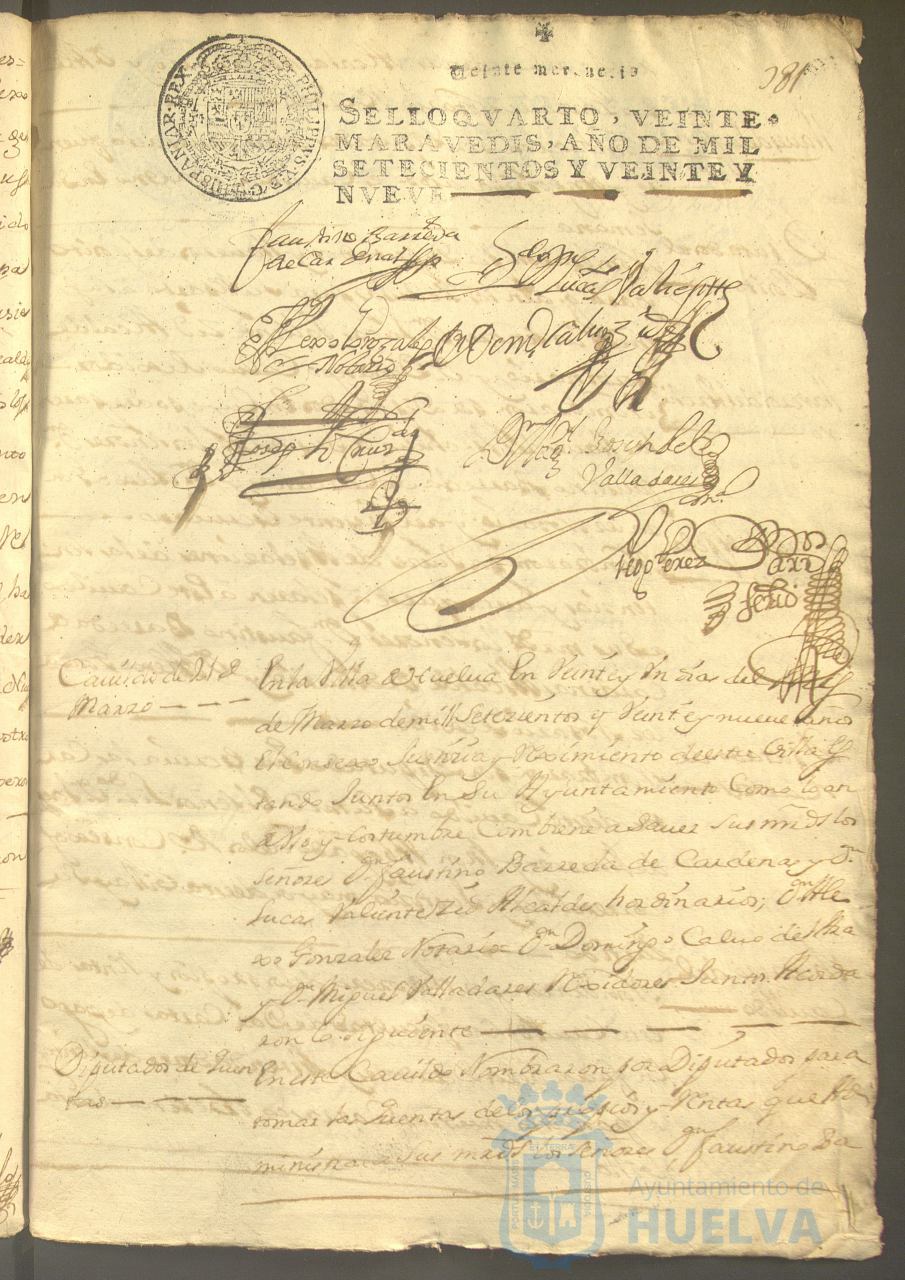 Veinte mar
381
PHILIPPUS V D G HISPANIAR REX
SELLO QVARTO, VEINTE
MARAVEDIS, AÑO DE MIL
SETECIENTOS Y VEINTE Y
NVEVE
Faustino Barreda
de Cardenas
Lucas Valiente
Alexo Gonzalez
Notario
Joseph de Cruz
Valladares
Perez
Cavildo de 21 de
Marzo
En la Villa de Huelva En Veinte y Un dias del Mes
de Marzo de mill Setezientos y Veinte y nueve años
El Consexo Justizia y Reximiento de esta Villa es
tando Juntos En Su Ayuntamiento Como lo an
de Uso y Costumbre Combiene a saver sus mrds los
señores Dn Faustino Barreda de Cardenas y Dn
Lucas Valiente Alcaldes hordinarios; Dn Ale
xo Gonzalez Notario Dn Domingo Calvo
y Dn Miguel Valladares Rexidores Juntos Acorda
ron lo siguiente
Diputador de Quen
tas
En este Cavildo Nombraron por Diputador para
tomar las Quentas de los y Rentas que Ad
ministra a sus mrds los señores Dn Faustino Ba
Ayuntamiento de
HUELVA